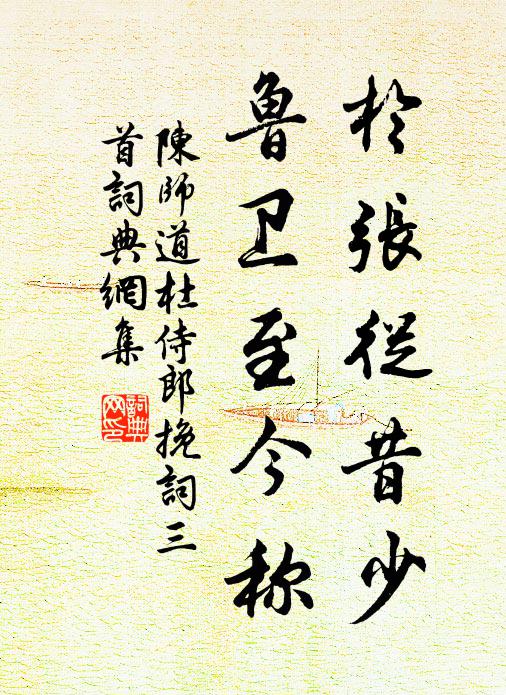 於張從昔少
鲁卫至今称
陳師道杜侍郎挽詞三
首詞典網集
詞典
网印